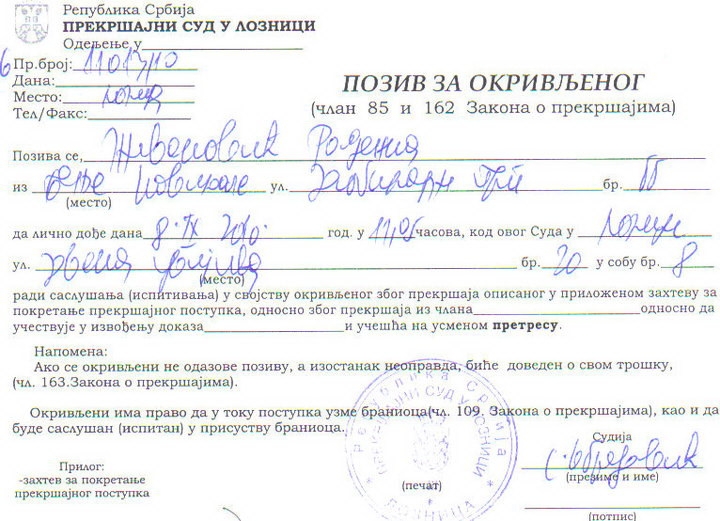 Република Србија
ПРЕКРШАЈНИ СУД У ЛОЗНИЦИ
Одељење у
6 Пр.број: 11013/10
Дана:
Место:
Тел/Факс:
ПОЗИВ ЗА ОКРИВЉЕНОГ
(члан 85 и 162 Закона о прекршајима)
Позива се,
из ул. бр. ББ
(место)
да лично дође дана 8. IX 2010. год. у 11,05 часова, код овог Суда у
ул. бр. 20 у собу бр. 8
(место)
ради саслушања (испитивања) у својству окривљеног због прекршаја описаног у приложеном захтеву за
покретање прекршајног поступка, односно због прекршаја из члана односно да
учествује у извођењу доказа и учешћа на усменом претресу.
Напомена:
Ако се окривљени не одазове позиву, а изостанак неоправда, биће доведен о свом трошку,
(чл. 163.Закона о прекршајима).
Окривљени има право да у току поступка узме браниоца(чл. 109. Закона о прекршајима), као и да
буде саслушан (испитан) у присуству браниоца.
Република Србија
ПРЕКРШАЈНИ СУД У ЛОЗНИЦИ
ЛОЗНИЦА
Судија
Прилог:
-захтев за покретање
прекршајног поступка
(печат)
(презиме и име)
(потпис)